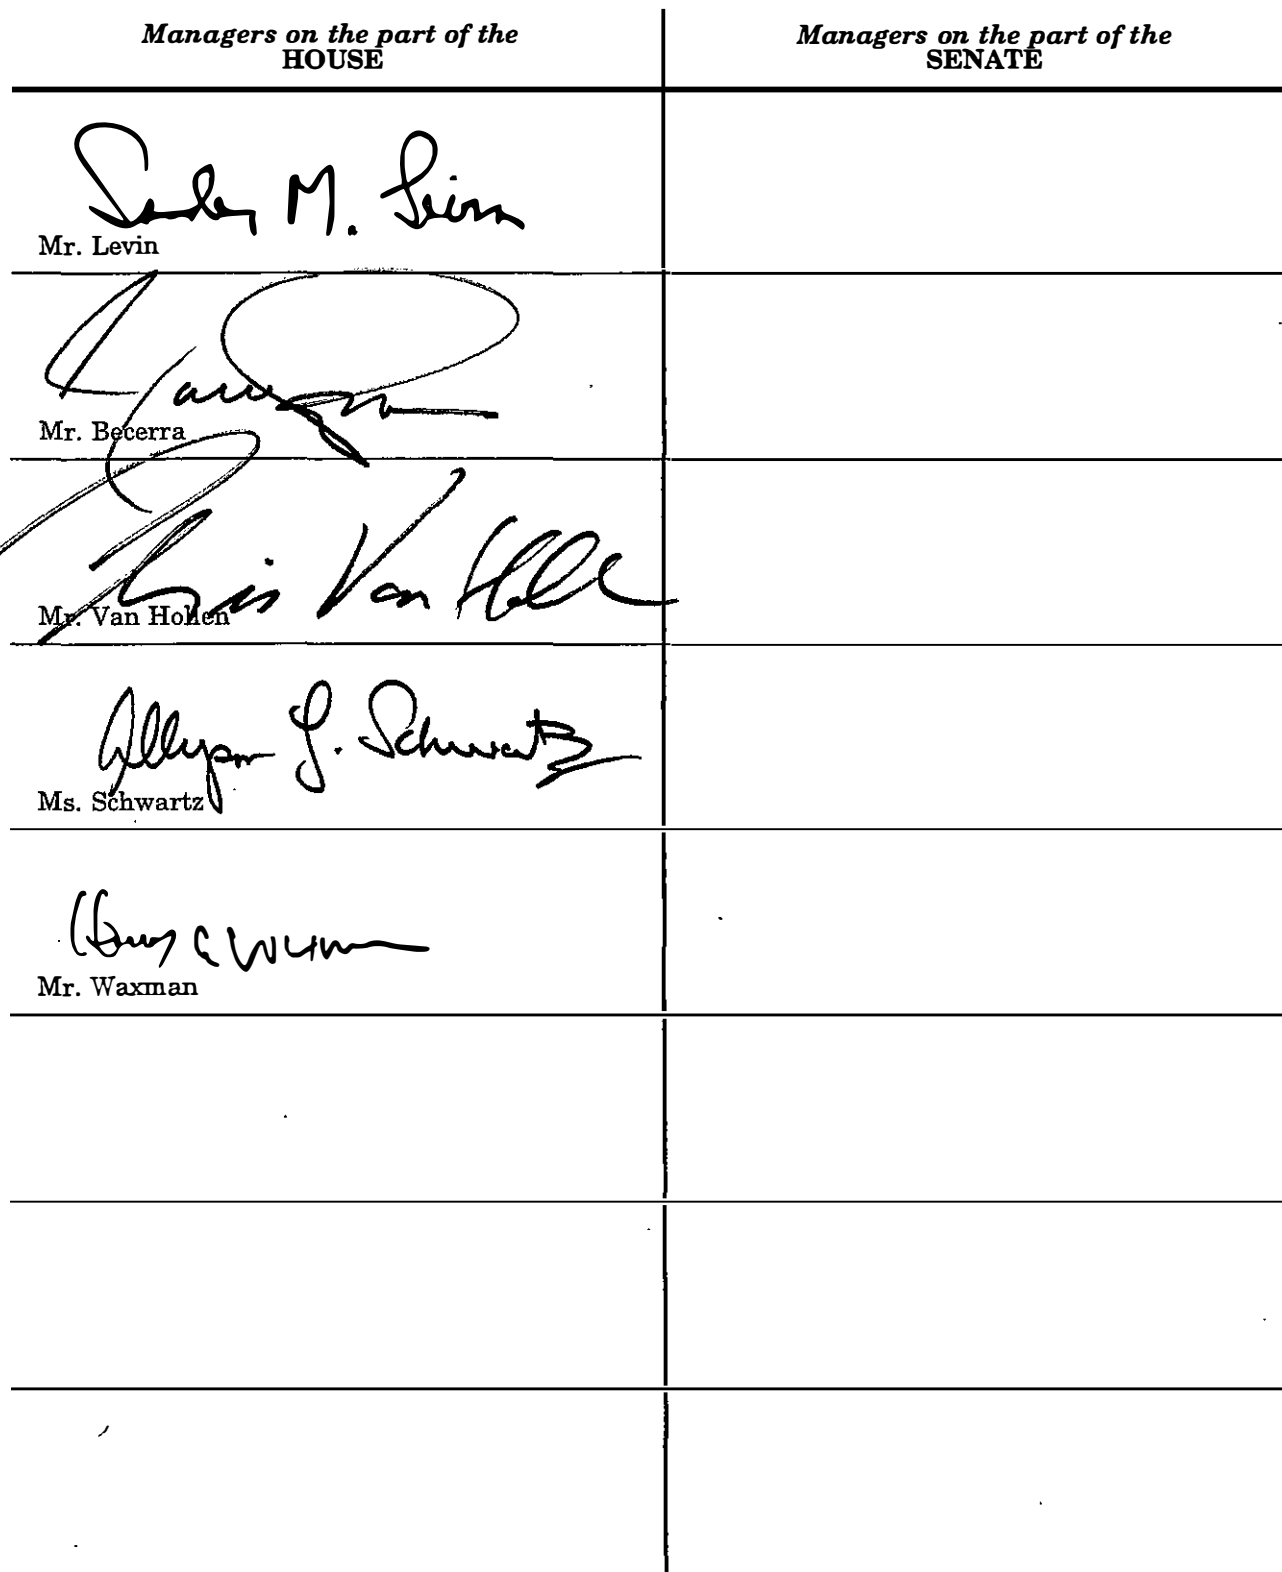 Managers on the part of the
HOUSE
Managers on the part of the
SENATE
Sander M. Levin
Mr. Levin
Mr. Becerra
Chris Van Hollen
Mr. Van Hollen
Allyson Y. Schwartz
Ms. Schwartz
Henry A Waxman
Mr. Waxman